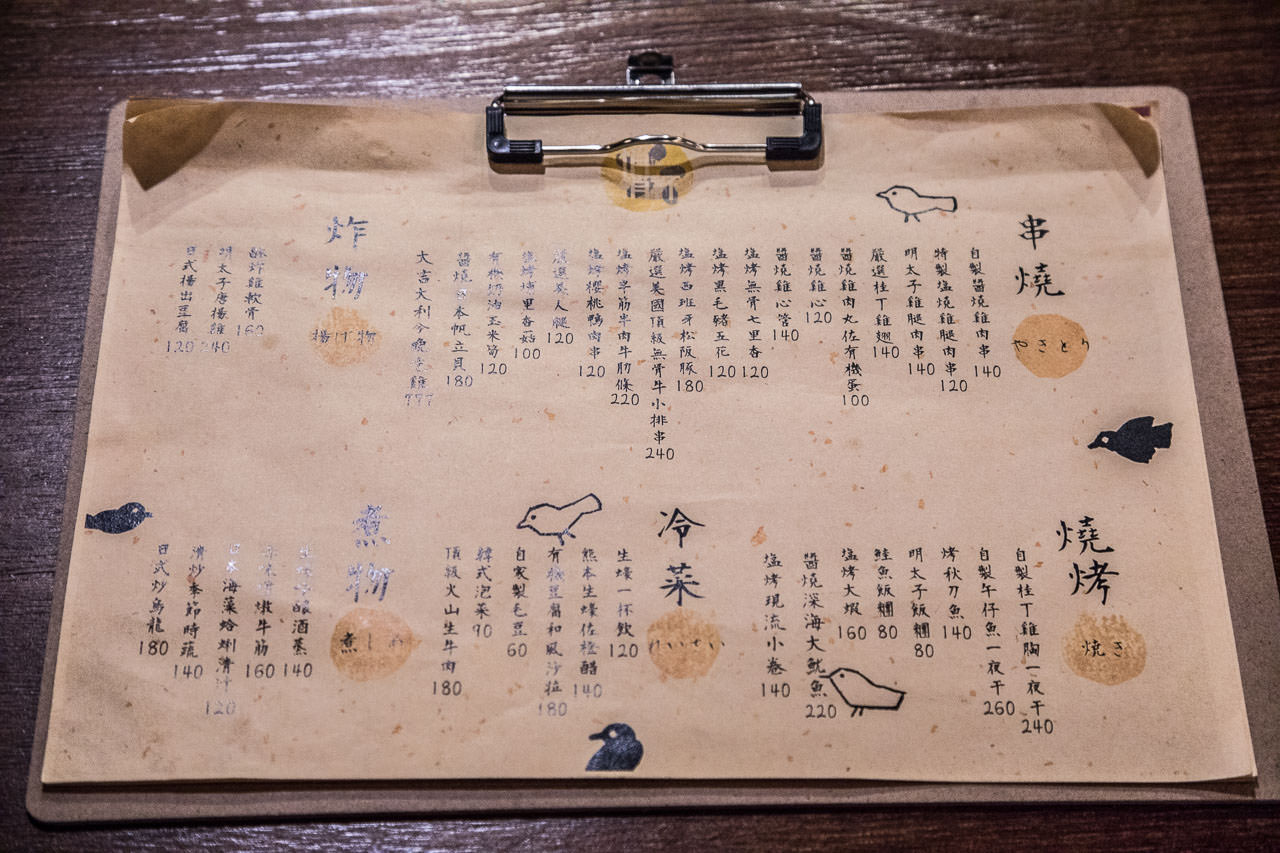 串燒
やきとり
自製醬燒雞肉串 140
特製塩燒雞腿肉串 120
明太子雞腿肉串 140
嚴選桂丁雞翅 140
醬燒雞肉丸佐有機蛋 100
醬燒雞心 120
醬燒雞心管 140
塩烤無骨七里香 120
塩烤黑毛豬五花 120
塩烤西班牙松阪豚 180
嚴選美國頂級無骨牛小排串 240
塩烤半筋半肉牛肋條 220
塩烤櫻桃鴨肉串 120
嚴選 腿 120
塩烤 里香菇 100
有機奶油玉米筍 120
醬燒日本帆立貝 180
大吉大利今晚吃雞 777
炸物
揚げ物
酥炸雞軟骨 160
明太子唐揚雞 240
日式揚出豆腐 120
燒烤
焼き
自製桂丁雞胸一夜干 240
自製午仔魚一夜干 260
烤秋刀魚 140
明太子飯糰 80
鮭魚飯糰 80
塩烤大蝦 160
醬燒深海大魷魚 220
塩烤現流小卷 140
冷菜
れいさい
生蠔一杯飲 120
熊本生蠔佐橙醋 140
有機豆腐和風沙拉 180
自家製毛豆 60
韓式泡菜 90
頂級火山生牛肉 180
煮物
煮しめ
酒蒸 140
燉牛筋 160
日本海藻蛤蜊清汁 120
清炒季節時蔬 140
日式炒烏龍 180